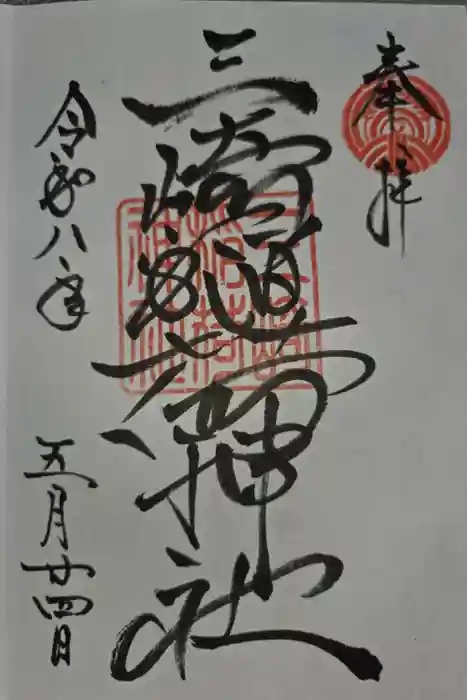 奉拝
三崎稲荷神社
令和八年
五月廿四日